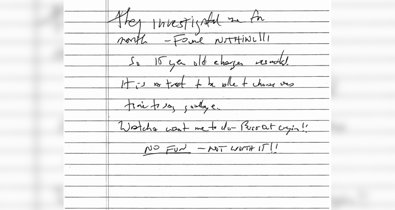 They investigated me for
month - Found NOTHING!!!
So 15 year old charges resulted
It is a treat to be able to choose ones
time to say goodbye.
Watcha want me to do- Burst out crying!!
NO FUN - NOT WORTH IT!!